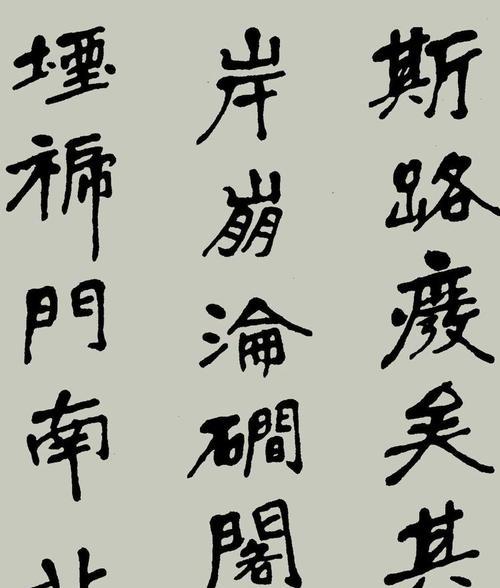 斯路癈矣其
岸崩淪磵閣
堙褫門南北